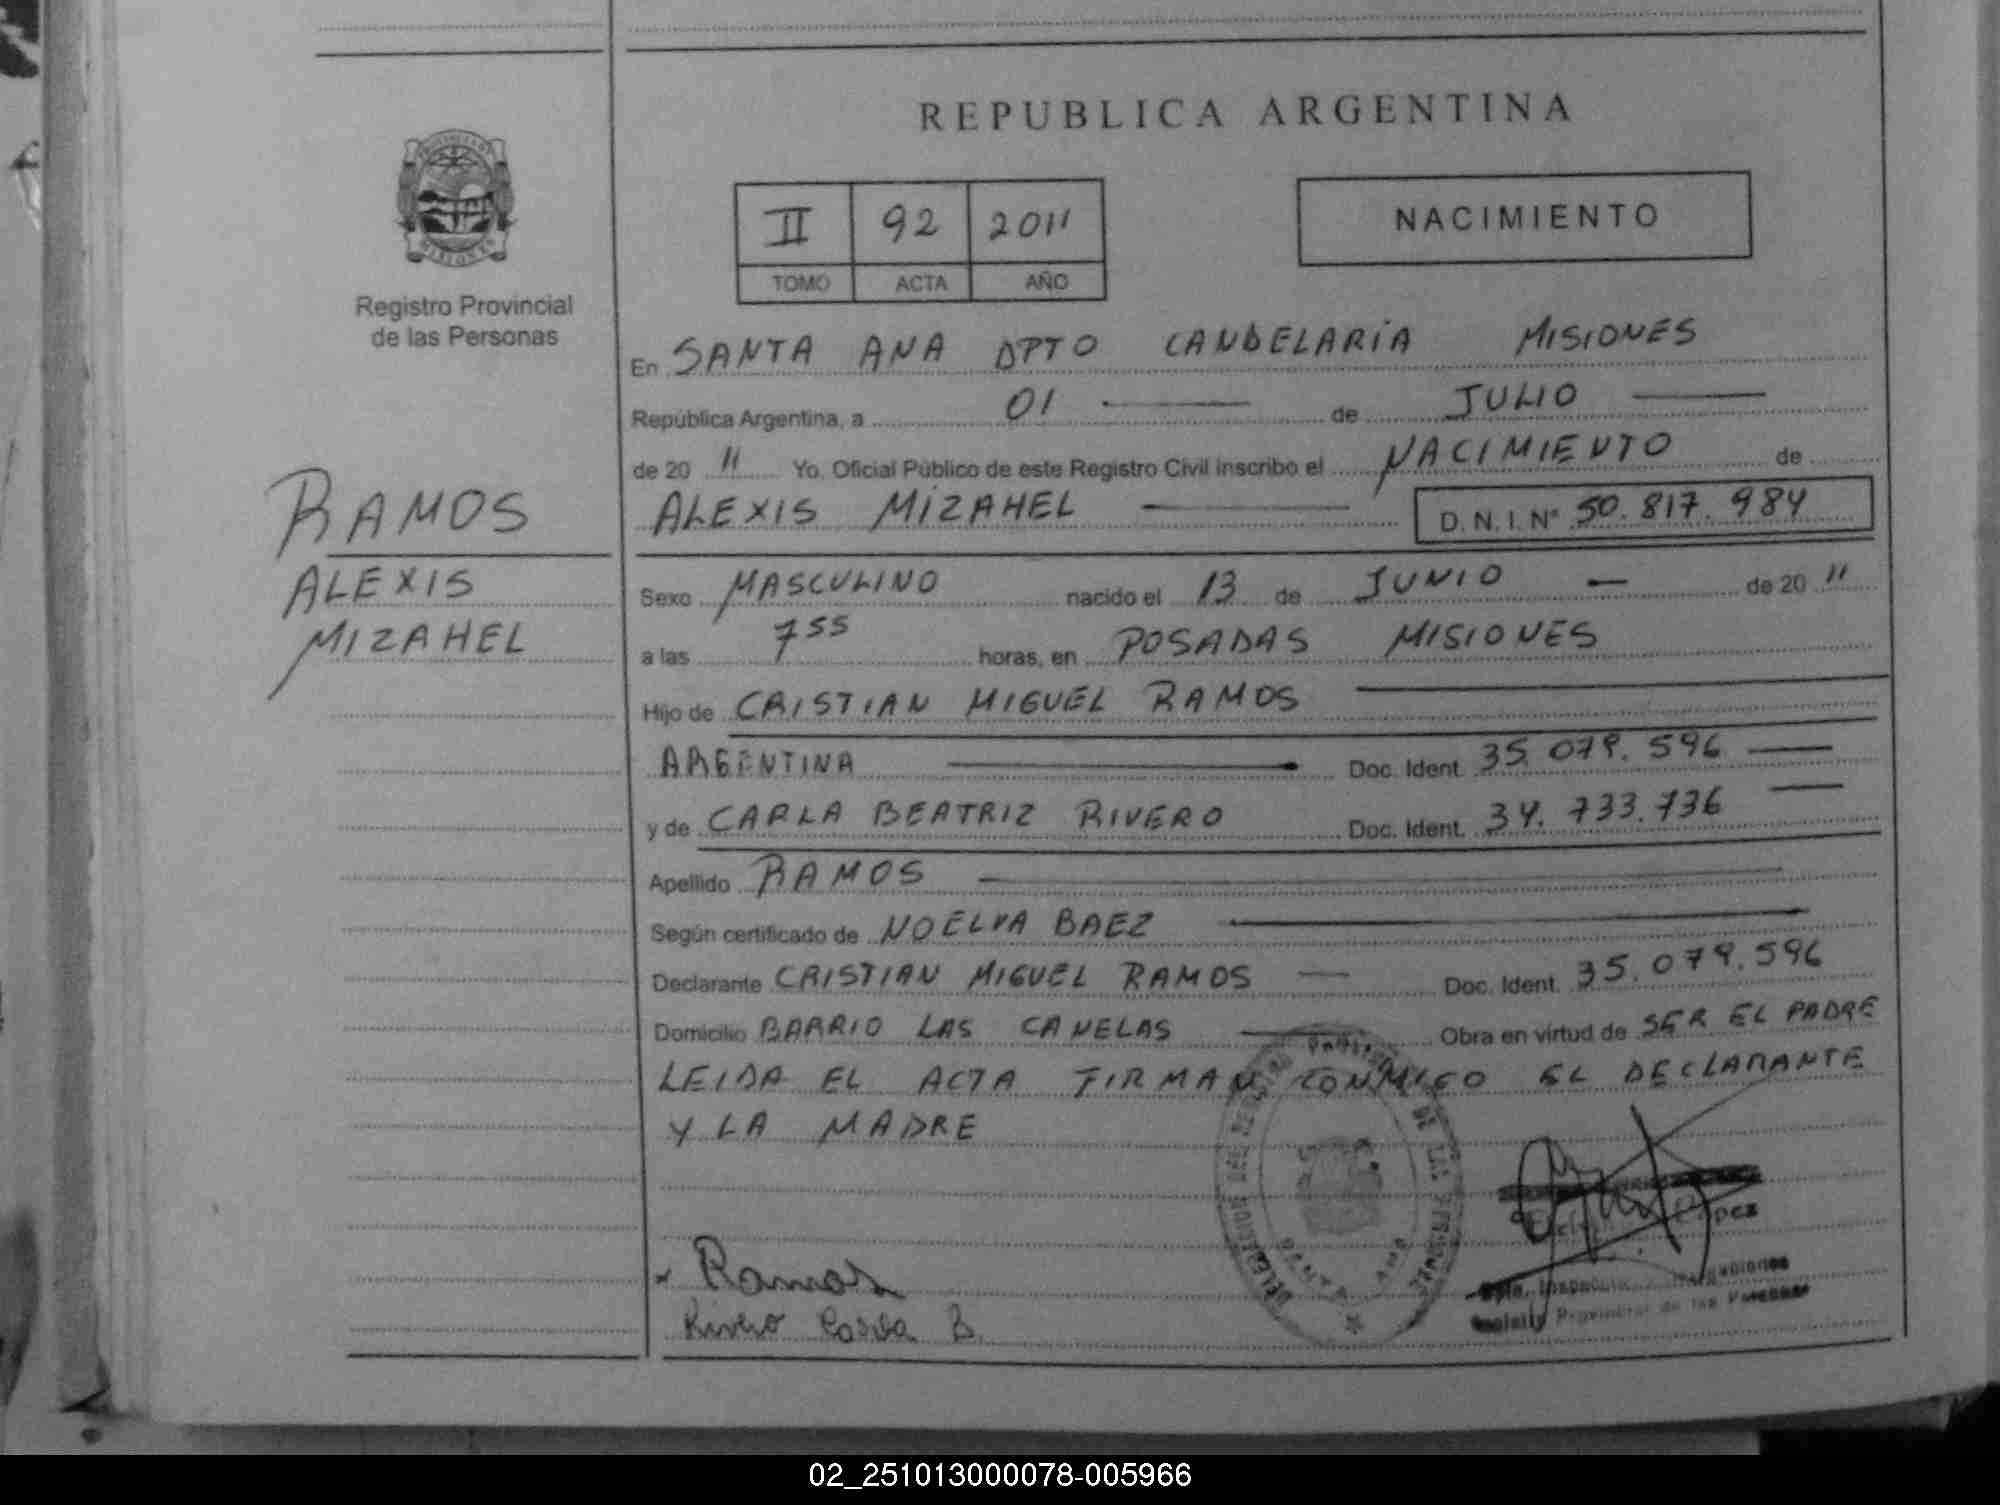 REPUBLICA ARGENTINA
II 92 2011
TOMO ACTA AÑO
NACIMIENTO
Registro Provincial
de las Personas
En SANTA ANA DPTO CANDELARIA MISIONES
República Argentina, a 01 de JULIO
de 20 11 Yo, Oficial Público de este Registro Civil inscribo el NACIMIENTO de
ALEXIS MIZAHEL D.N.I.Nº 50.817.984
RAMOS
ALEXIS
MIZAHEL
Sexo MASCULINO nacido el 13 de JUNIO de 20 11
a las 7 55 horas, en POSADAS MISIONES
Hijo de CRISTIAN MIGUEL RAMOS
ARGENTINA Doc. Ident. 35.079.596
y de CARLA BEATRIZ RIVERO Doc. Ident. 34.733.736
Apellido RAMOS
Según certificado de NOELVA BAEZ
Declarante CRISTIAN MIGUEL RAMOS Doc. Ident. 35.079.596
Domicilio BARRIO LAS CANELAS Obra en virtud de SER EL PADRE
LEIDA EL ACTA FIRMAN CONMIGO EL DECLARANTE
Y LA MADRE
x Ramos
Rivero Carla B
DELEGACION DEL REGISTRO PROVINCIAL DE LAS PERSONAS
SANTA ANA
Provincial de las Personas
02_251013000078-005966